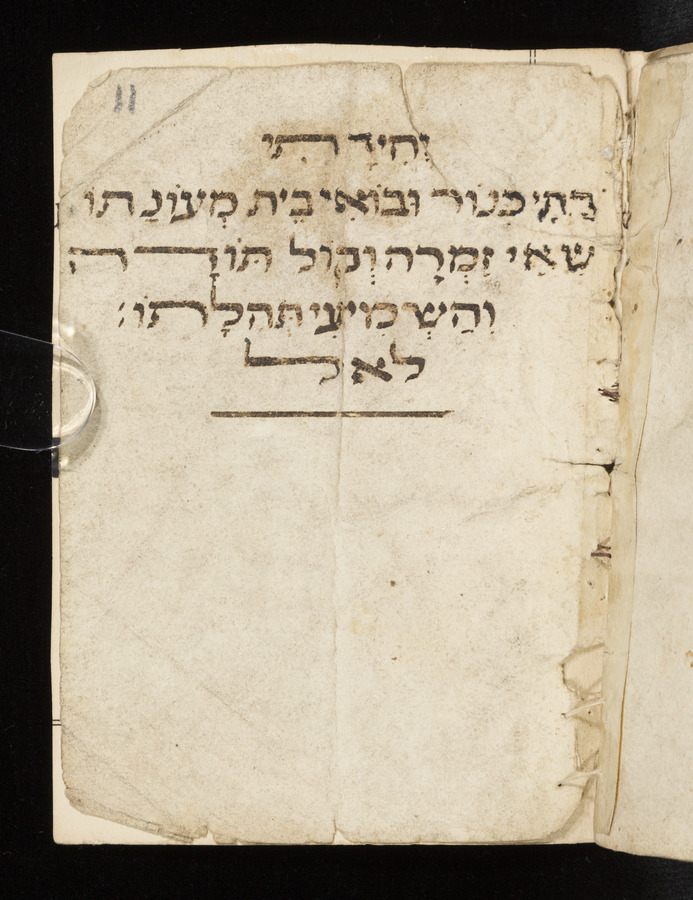 11
וִחִידָתִי
קְחִי כִנּוֹר וּבוֹאִי בֵית מְעוֹנָתוֹ
שְׂאִי זִמְרָה וְקוֹל תּוֹדָה
וְהַשְׁמִיעִי תְּהִלָּתוֹ׃
לאל